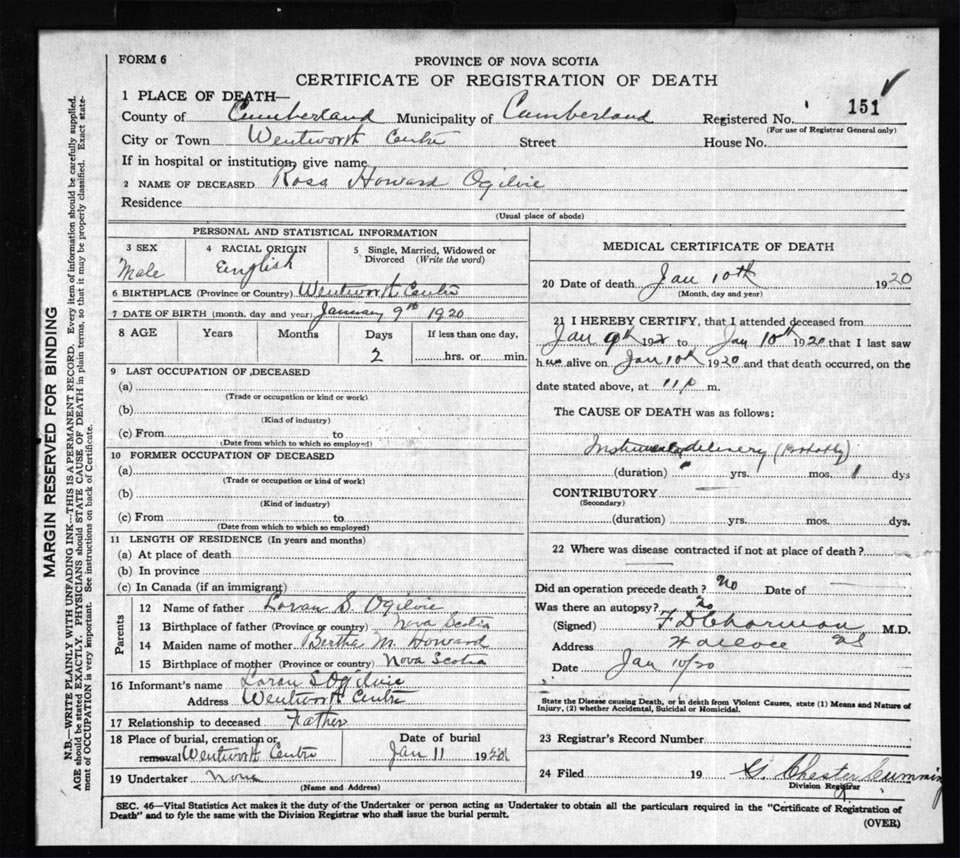 FORM 6
PROVINCE OF NOVA SCOTIA
CERTIFICATE OF REGISTRATION OF DEATH
1 PLACE OF DEATH—
County of Cumberland Municipality of Cumberland Registered No. 151
(For use of Registrar General only)
City or Town Wentworth Centre Street House No.
If in hospital or institution, give name
2 NAME OF DECEASED Ross Howard Ogilvie
Residence
(Usual place of abode)
PERSONAL AND STATISTICAL INFORMATION
3 SEX Male
4 RACIAL ORIGIN English
5 Single, Married, Widowed or Divorced (Write the word)
6 BIRTHPLACE (Province or Country) Wentworth Centre
7 DATE OF BIRTH (month, day and year) January 9th 1920
8 AGE Years Months Days If less than one day,
2 hrs. or min.
9 LAST OCCUPATION OF DECEASED
(a)
(Trade or occupation or kind or work)
(b)
(Kind of industry)
(c) From to
(Date from which to which so employed)
10 FORMER OCCUPATION OF DECEASED
(a)
(Trade or occupation or kind of work)
(b)
(Kind of industry)
(c) From to
(Date from which to which so employed)
11 LENGTH OF RESIDENCE (In years and months)
(a) At place of death
(b) In province
(c) In Canada (if an immigrant)
Parents
12 Name of father Loran S. Ogilvie
13 Birthplace of father (Province or country) Nova Scotia
14 Maiden name of mother Bertha M. Howard
15 Birthplace of mother (Province or country) Nova Scotia
16 Informant's name Loran S Ogilvie
Address Wentworth Centre
17 Relationship to deceased Father
18 Place of burial, cremation or removal Wentworth Centre
Date of burial Jan 11 1920
19 Undertaker None
(Name and Address)
MEDICAL CERTIFICATE OF DEATH
20 Date of death Jan 10th 1920
(Month, day and year)
21 I HEREBY CERTIFY, that I attended deceased from
Jan 9th 192 to Jan 10th 1920 that I last saw
h im alive on Jan 10th 1920 and that death occurred, on the
date stated above, at 11 p m.
The CAUSE OF DEATH was as follows:
Instrument delivery (Probably)
(duration) yrs. mos. 1 dys
CONTRIBUTORY
(Secondary)
(duration) yrs. mos. dys.
22 Where was disease contracted if not at place of death?
Did an operation precede death? No Date of
Was there an autopsy? No
(Signed) M.D.
Address Wallace NS
Date Jan 10/20
State the Disease causing Death, or in death from Violent Causes, state (1) Means and Nature of
Injury, (2) whether Accidental, Suicidal or Homicidal.
23 Registrar's Record Number
24 Filed 19 G. Chester Cumming
Division Registrar
SEC. 46—Vital Statistics Act makes it the duty of the Undertaker or person acting as Undertaker to obtain all the particulars required in the "Certificate of Registration of
Death" and to fyle the same with the Division Registrar who shall issue the burial permit.
(OVER)
MARGIN RESERVED FOR BINDING
N.B.—WRITE PLAINLY WITH UNFADING INK—THIS IS A PERMANENT RECORD. Every item of information should be carefully supplied.
AGE should be stated EXACTLY. PHYSICIANS should STATE CAUSE OF DEATH in plain terms, so that it may be properly classified. Exact state-
ment of OCCUPATION is very important. See instructions on back of Certificate.